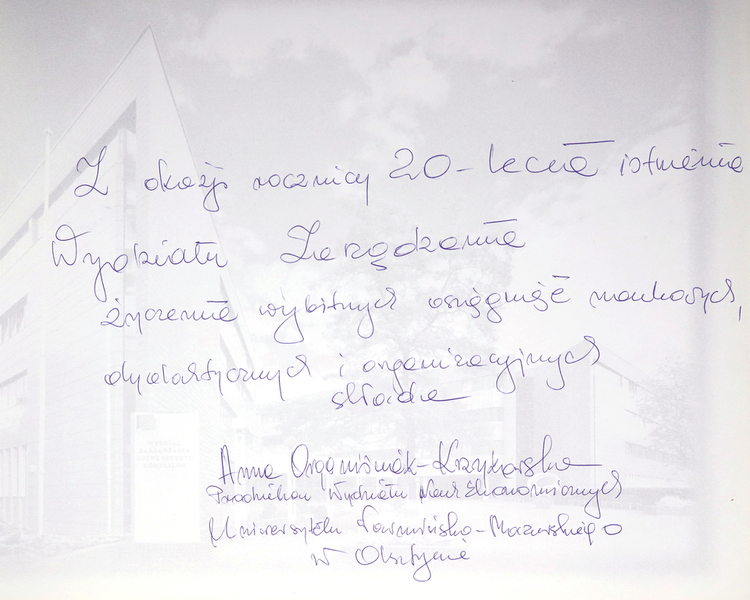 Z okazji rocznicy 20-lecia istnienia
Wydziału Zarządzania
życzenia wybitnych osiągnięć naukowych,
dydaktycznych i organizacyjnych
składa
Anna Organiściak-Krzykowska
Prodziekan Wydziału Nauk Ekonomicznych
Uniwersytetu Warmińsko-Mazurskiego
w Olsztynie